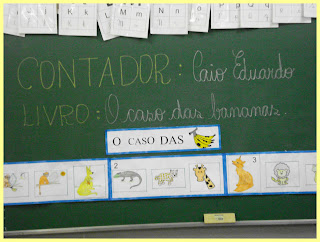 CONTADOR: Caio Eduardo
LIVRO: O caso das bananas.
O CASO DAS
2
3